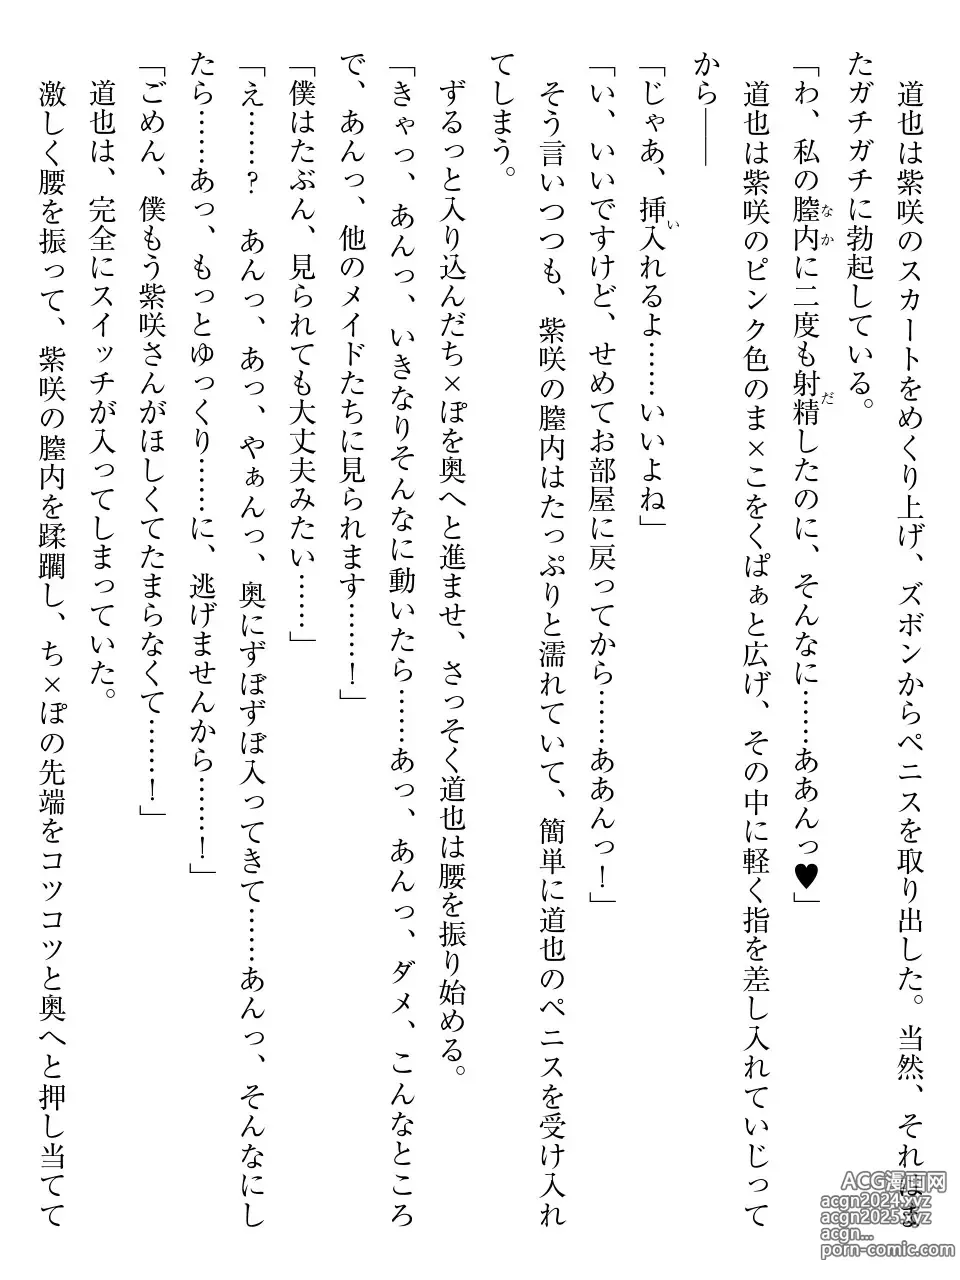 道也は紫咲のスカートをめくり上げ、ズボンからペニスを取り出した。当然、それはま
たガチガチに勃起している。
「わ、私の膣内に二度も射精したのに、そんなに……ああんっ♥」
道也は紫咲のピンク色のま×こをくぱぁと広げ、その中に軽く指を差し入れていじって
から――
「じゃあ、挿入れるよ……いいよね」
「い、いいですけど、せめてお部屋に戻ってから……ああんっ！」
そう言いつつも、紫咲の膣内はたっぷりと濡れていて、簡単に道也のペニスを受け入れ
てしまう。
ずるっと入り込んだち×ぽを奥へと進ませ、さっそく道也は腰を振り始める。
「きゃっ、あんっ、いきなりそんなに動いたら……あっ、あんっ、ダメ、こんなところ
で、あんっ、他のメイドたちに見られます……！」
「僕はたぶん、見られても大丈夫みたい……」
「え……？　あんっ、あっ、やぁんっ、奥にずぼずぼ入ってきて……あんっ、そんなにし
たら……あっ、もっとゆっくり……に、逃げませんから……！」
「ごめん、僕もう紫咲さんがほしくてたまらなくて……！」
道也は、完全にスイッチが入ってしまっていた。
激しく腰を振って、紫咲の膣内を蹂躙し、ち×ぽの先端をコツコツと奥へと押し当てて
なか
だ
い
ACG漫画网
acgn2024.xyz/
acgn2025.xyz/
acgn...
porn-comic.com/